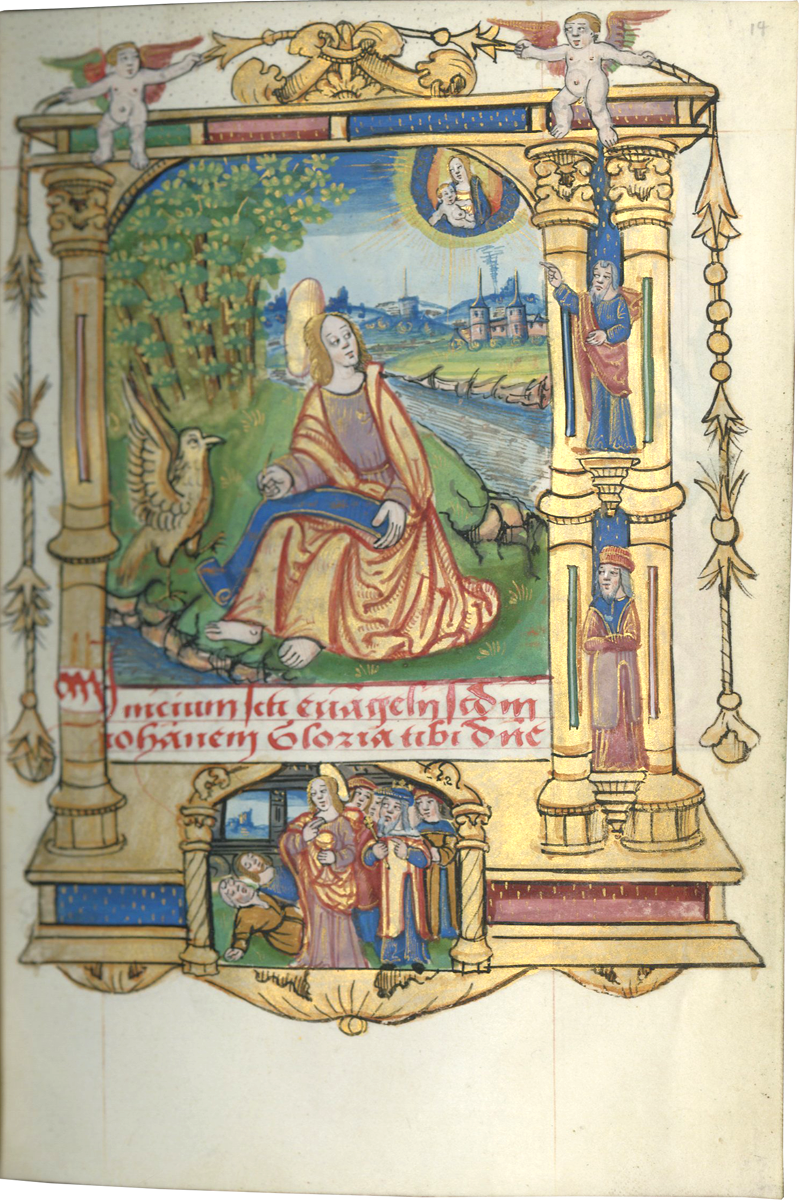 14
Inicium scti evāgelii scdm
iohānem Gloria tibi dñe